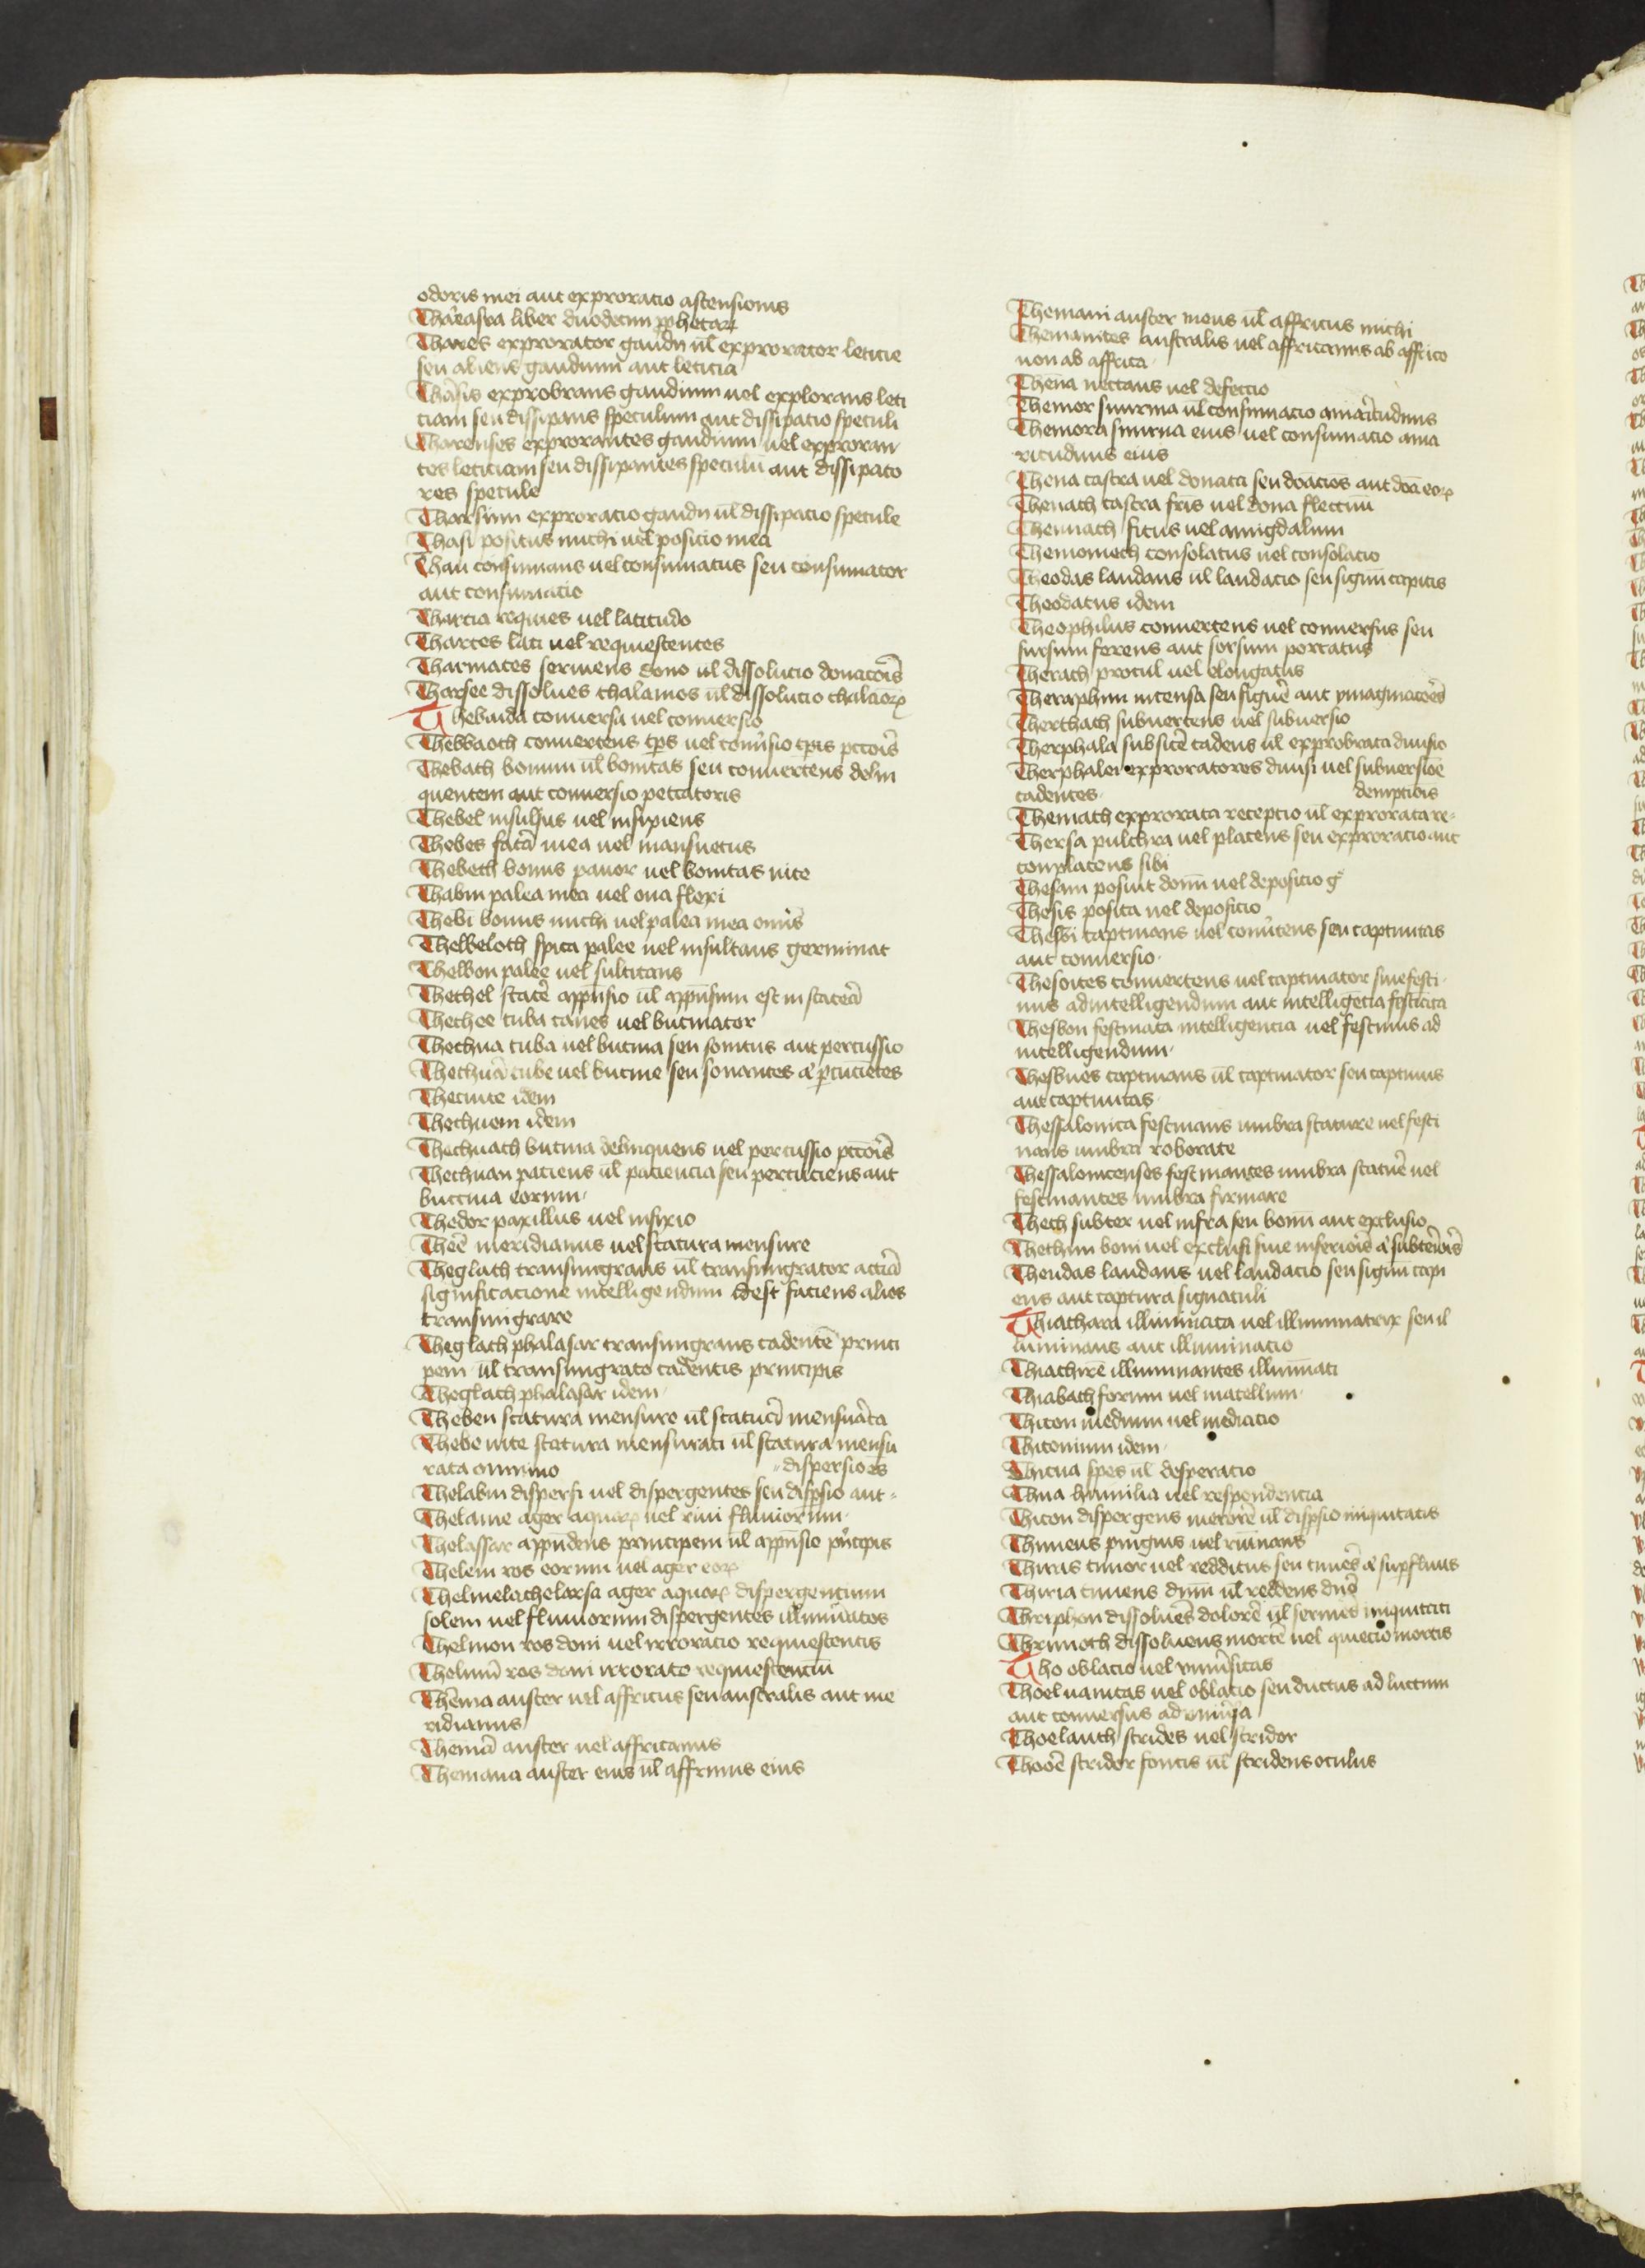 odoris mei aut exproratio ascensionis
Thareasra liber duodecim prophetarum
Thares exprorator gaudii ul exprorator leticie
seu aliens gaudium aut leticia
Tharsis exprobrans gaudium uel explorans leti
ciam seu dissipans speculum aut dissipatio speculi
Tharenses exprorantes gaudium uel exproran
tes leticiam seu dissipantes speculū aut dissipato
res specule
Tharsim exproratio gaudii ul dissipatio specule
Thasi positus michi uel positio mea
Thau consumans uel consumatus seu consumator
aut consumatio
Thartia requies uel latitudo
Thartes lati uel requiescentes
Tharmates seruiens dono ul dissolutio donatōis
Tharsee dissolues thalamos ul dissolutio
Thebaida conuersa uel conuersio
Thebbaoth conuertens tps uel conūsio tpis pctōis
Thebath bonum ul bonitas seu conuertens delin
quentem aut conuersio peccatoris
Thebel insulsus uel insipiens
Thebes mea uel mansuetus
Thebeth bonus pauor uel bonitas uite
Thabin palea mea uel oua flexi
Thebi bonus michi uel palea mea
Thelbeloth spica palee uel insultans germinat
Thelbon palee uel sultitans
Thethel statē appēsio ul appēsum est in
Thechee tuba canes uel bucinator
Thechua tuba uel bucina seu sonitus aut percussio
tube uel bucine seu sonantes
Thecuite idem
Thechuem idem
Thechuath bucina delinquens uel percussio pctōis
Thechuan paciens ul paciencia seu perruciens aut
buccina eorum
Thedor paxillus uel infixio
Theē meridianus uel statura mensure
Theglath transmigrans ul transmigrator
significacione intelligendum idest faciens alios
transmigrare
Theglath phalasar transmigrans cadentē princi
pem ul transmigrato cadentis principis
Theglach phalasar idem
Theben statura mensure ul
Thebe uite statura mensurati ul statura mensu
rata omnino dispersiōes
Thelabin dispersi uel dispergentes seu aut
Thelame ager aquarum uel riui fluuiorum
Thelassar appēdens principem ul appēsio pricipis
Thelem ros eorum uel ager eorum
Thelmelathelarsa ager aquarum dispergentium
solem uel fluuiorum dispergentes
Thelmon ros doni uel irroratio requiescentis
Thelmim ros doni irrorato requiescentium
Thēma auster uel affricus seu australis aut me
ridianus
Themā auster uel affricanus
Themana auster eius ul eius
Themani auster meus ul affricus michi
Themanites australis uel affricanus ab affrico
non ab affrica
Thena nectans uel defectio
Themor smirna ul consumacio amaritudinis
Themora smirna eius uel consumatio ama
ritudinis eius
Thena castra uel donata seu aut
Thenath castra uel dona
Thennach ficus uel amigdalum
Themomech consolatus uel consolacio
Theodas laudans ul laudacio seu signum capitis
Theodatus idem
Theophilus conuertens uel conuersus seu
sursum ferens aut sorsum portatus
Therach procul uel elongatus
Theraphim intensa seu aut
Therthach subuertens uel subuersio
Therphala cadens ul exprobrata diuisio
Therphalei exproratores diuisi uel
cadentes demptiōis
Themach exprorata receptio ul exprorata re
Thersa pulchra uel placens seu exproratio aut
complacens sibi
Thesam posuit uel depositio
Thesis posita uel depositio
Thesbi captiuans uel conūtens seu captiuitas
aut conuersio
Thesoites conuertens uel captiuator siue festi
nus ad intelligendum aut intelligētia
Thesbon festinata intelligencia uel festinus ad
intelligendum
Thesbues captiuans ul captiuator seu captiuus
aut captiuitas
Thessalonica festinans umbra stature uel festi
nans umbra roborate
Thessalonicenses festinantes umbra statuē uel
festinantes umbra firmare
Thech subter uel infra seu bonū aut exclusio
Thethim boni uel exclusi siue
Theudas laudans uel laudacio seu signum capi
ens aut captura signaculi
Thiathara illuminata uel illuminatrix seu il
luminans aut illuminacio
Thiathirē illuminantes illuminati
Thiabath forum uel macellum
Thicon medium uel mediacio
Thiconium idem
Thicua spes ul desperacio
Thiia humilia uel respondencia
Thicon dispergens ul iniquitatis
Thimeus pinguis uel
Thiras timor uel redditus seu
Thiria timens dnm ul reddens
Thriphon dissoluēs dolorē ul
Thrimoth dissoluens mortē uel mortis
Tho oblacio uel
Thoel uanitas uel oblacio seu ductus ad luctum
aut conuersus ad
Thoelauth strides uel stridor
Thooē stridor fontis ul stridens oculus